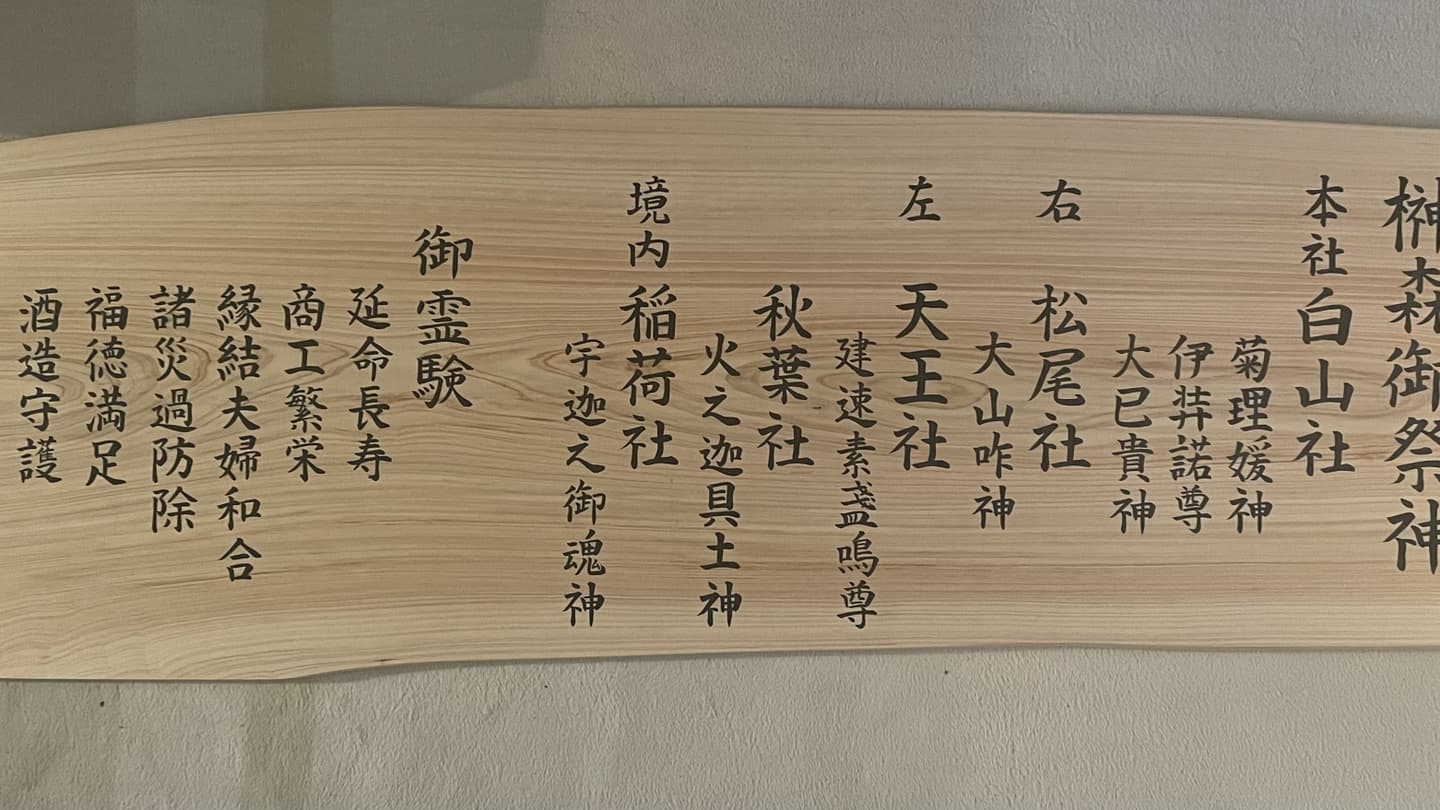 榊森御祭神
本社 白山社
菊理媛神
伊弉諾尊
大已貴神
右 松尾社
大山咋神
左 天王社
建速素盞鳴尊
秋葉社
火之迦具土神
境内 稲荷社
宇迦之御魂神
御霊験
延命長寿
商工繁栄
縁結夫婦和合
諸災過防除
福徳満足
酒造守護